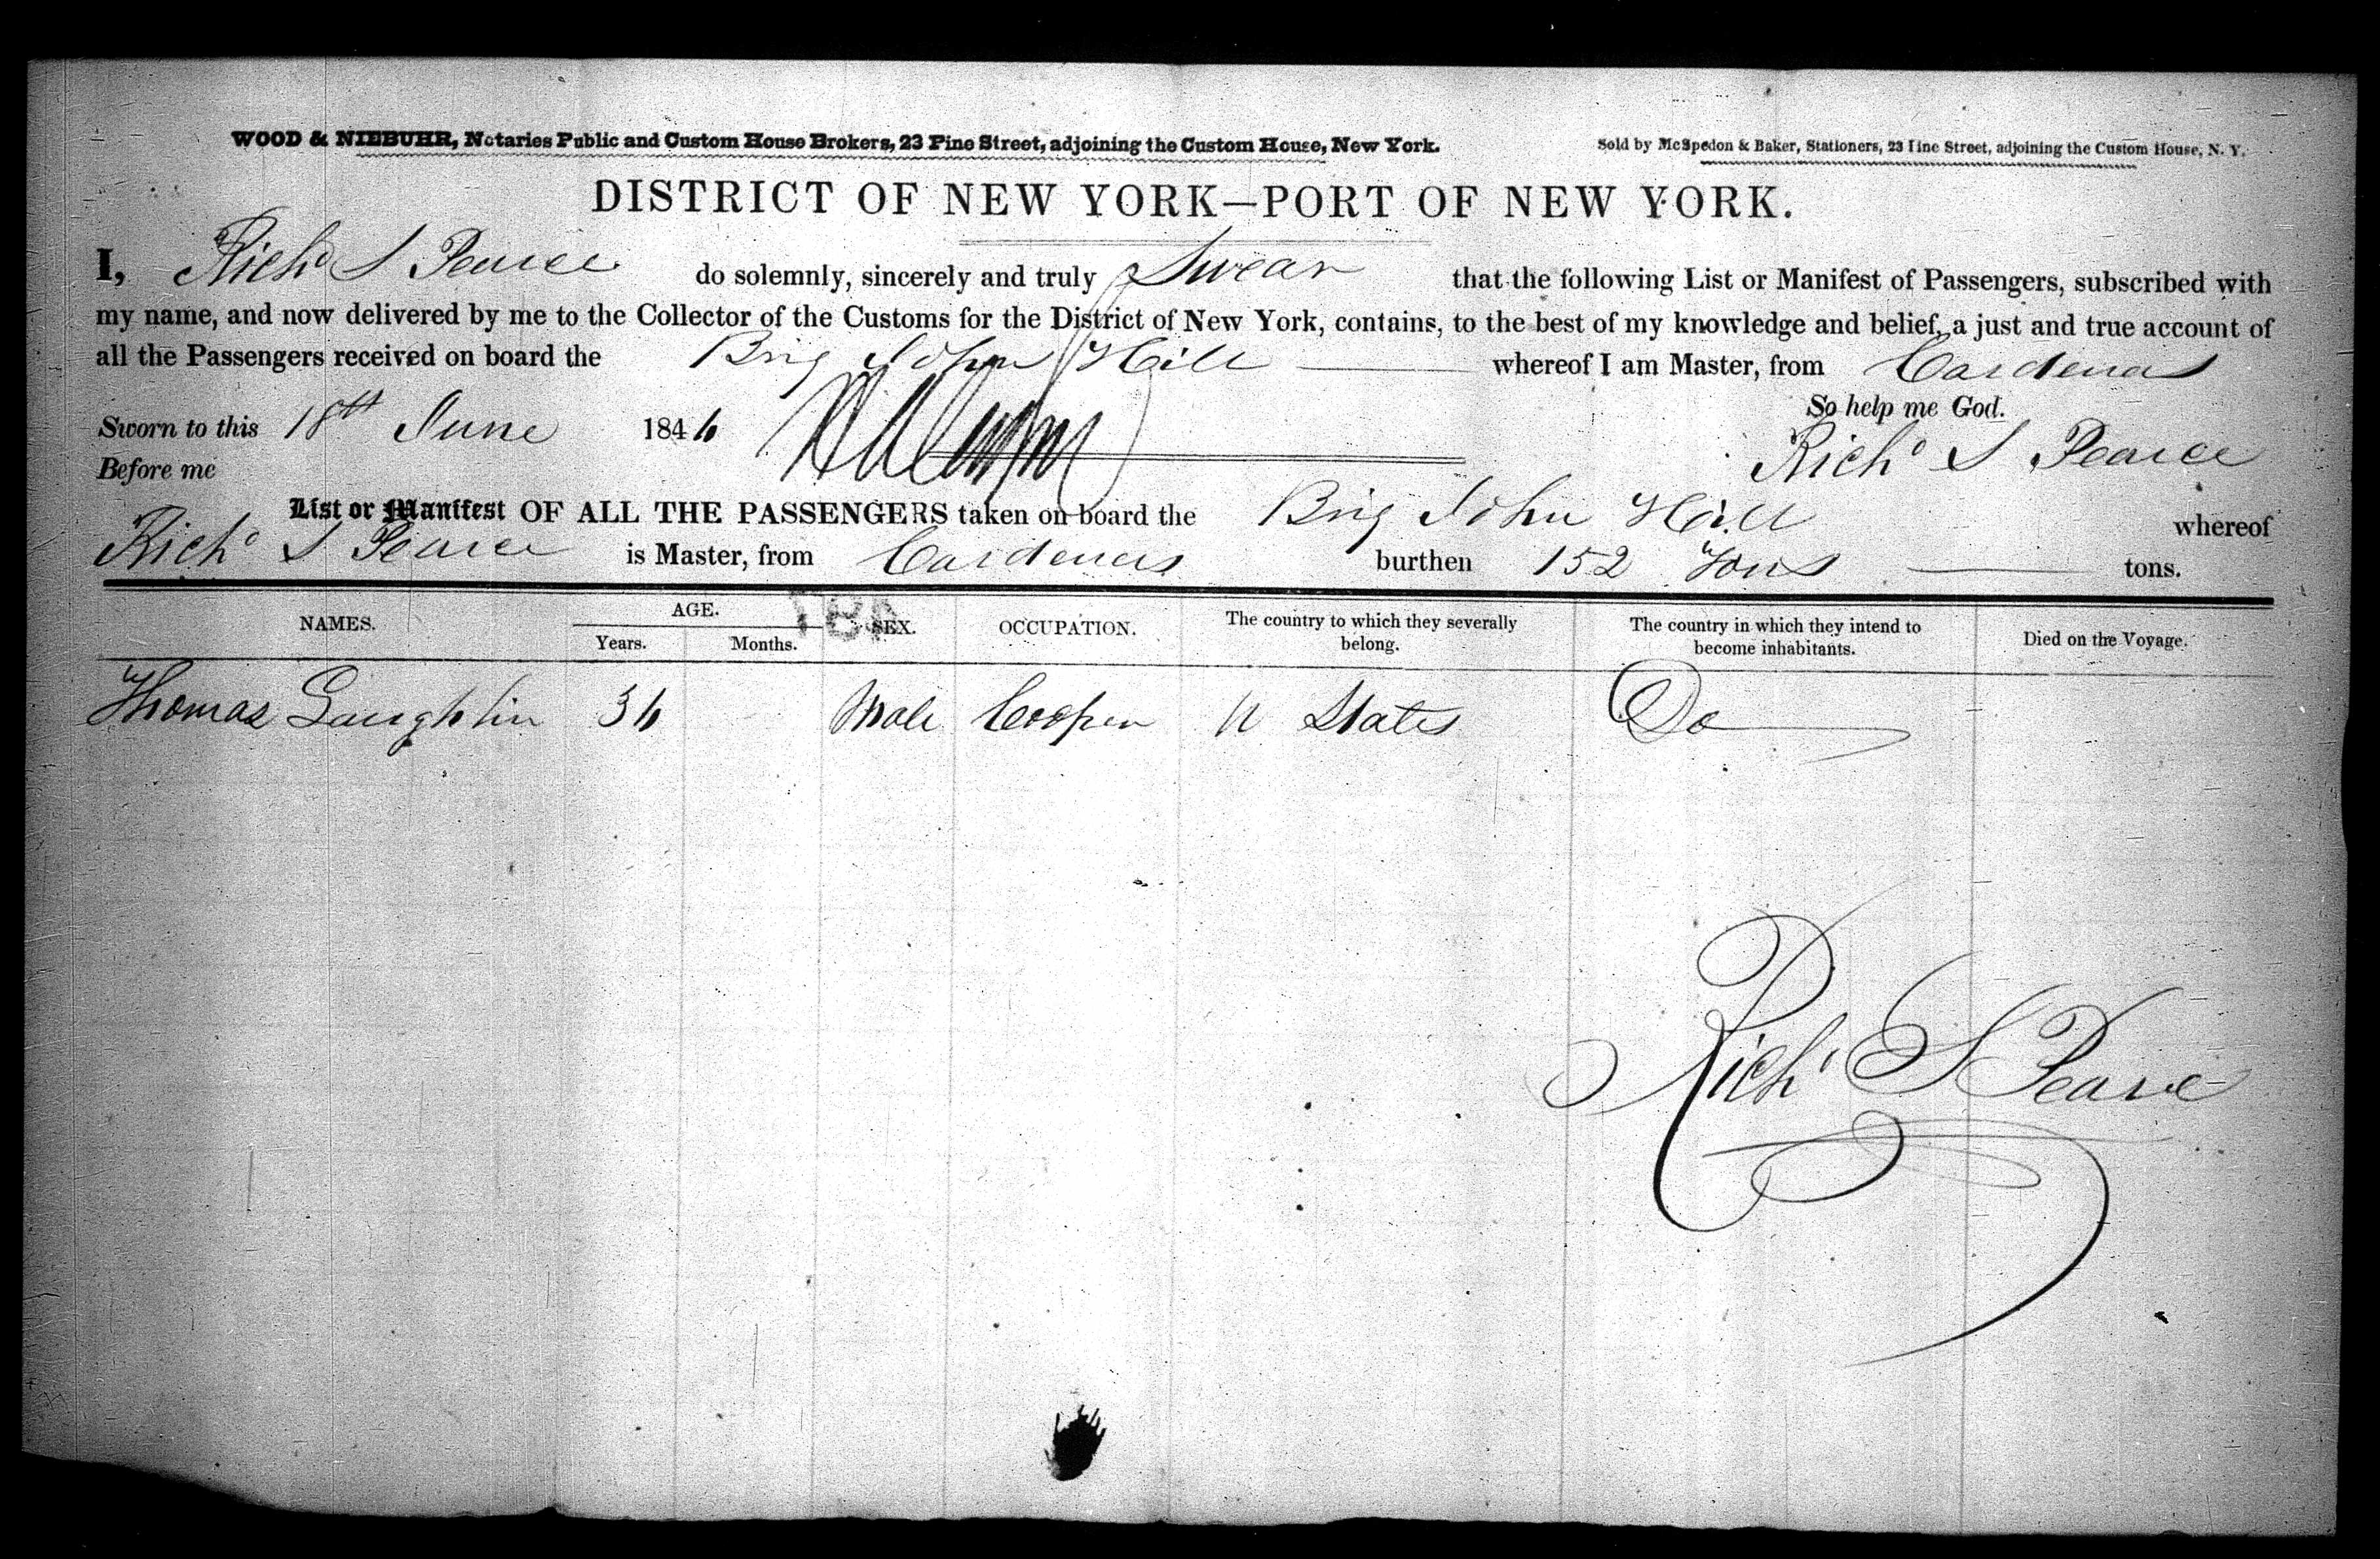 WOOD & NIEBUHR, Notaries Public and Custom House Brokers, 23 Pine Street, adjoining the Custom House, New York.
Sold by McSpedon & Baker, Stationers, 23 Pine Street, adjoining the Custom House, N. Y.
DISTRICT OF NEW YORK—PORT OF NEW YORK.
I, Richd S Pearce do solemnly, sincerely and truly Swear that the following List or Manifest of Passengers, subscribed with
my name, and now delivered by me to the Collector of the Customs for the District of New York, contains, to the best of my knowledge and belief, a just and true account of
all the Passengers received on board the Brig John Hill whereof I am Master, from Cardenas
So help me God.
Sworn to this 18th June 1846
Richd S Pearce
Before me
List or Manifest OF ALL THE PASSENGERS taken on board the Brig John Hill whereof
Richd S Pearce is Master, from Cardenas burthen 152 Tons tons.
NAMES. AGE. Years. Months. SEX. OCCUPATION. The country to which they severally belong. The country in which they intend to become inhabitants. Died on the Voyage.
Thomas Laughlin 36 Male Cooper U States Do
Richd S Pearce